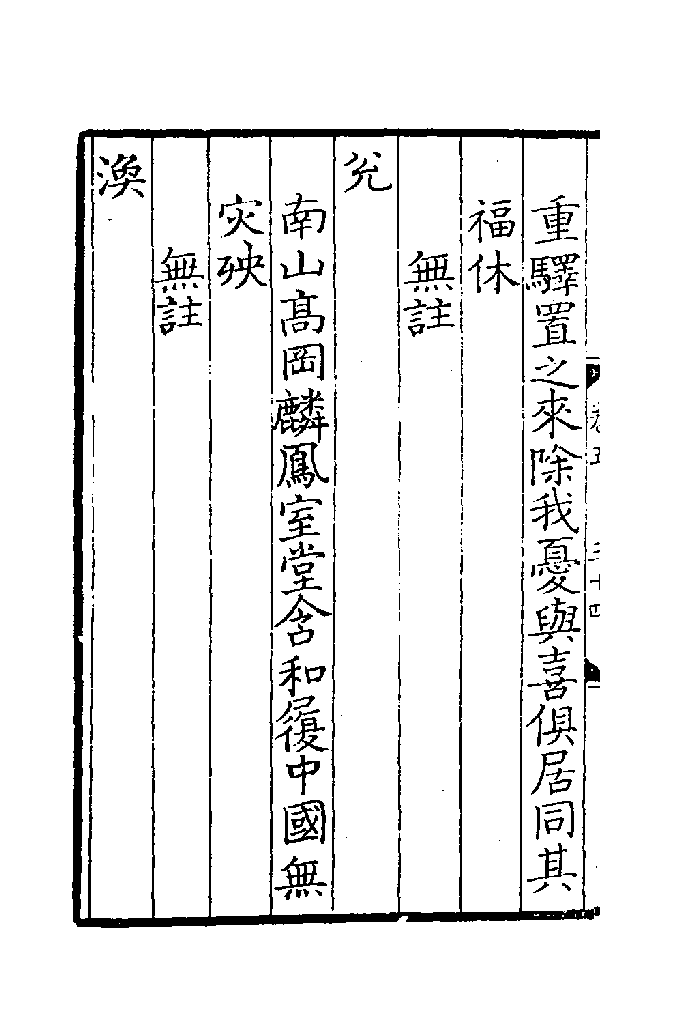 重驛置之來除我憂與喜俱居同其
福休
無註
兊
南山髙岡麟鳳室堂含和履中國無
灾殃
無註
渙
卷五
三十四